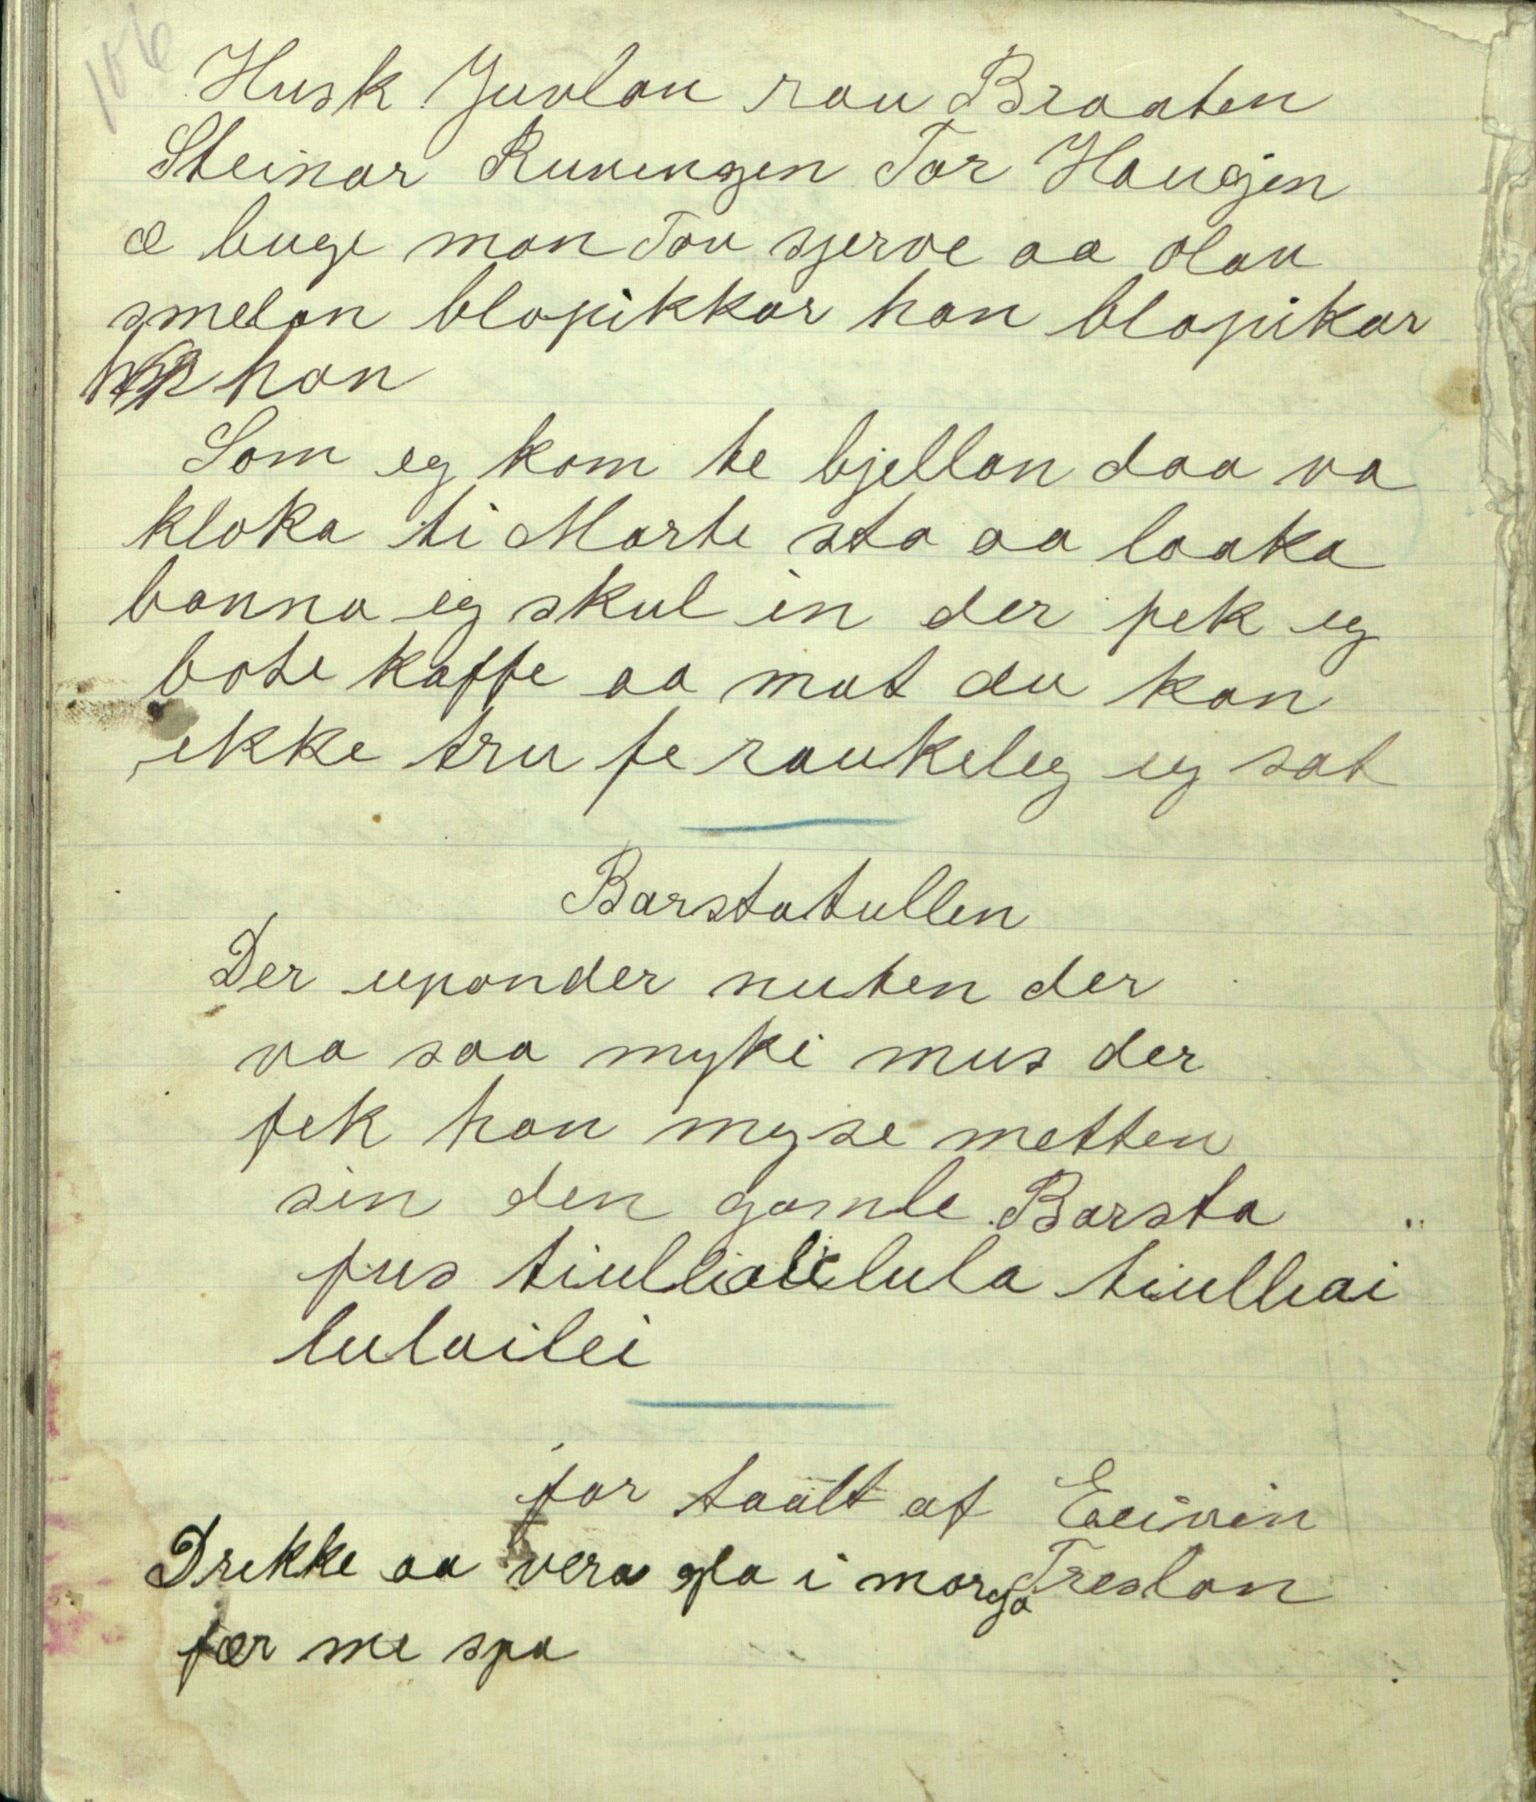 106
Husk Juvlan rau Braaten
Steinar Ruvengen Tor Haugen
æ buge man Tov sjerve aa Olav
smedan blapikkar han blapikar
han
Som eg kom te bjellan daa va
kloka ti Marte sto aa laaka
banna eg skul in der fek eg
bote kaffe aa mat du kan
ikke tru fe raukeleg eg sat
Barstatullen
Der uponder nuten der
va saa myki mus der
fek han myse metten
sin den gamle Barsta
fus tiullialilula tiulliai
lulailei
for taalt af Eeivin
Treslan
Drekke aa vera gla i morga
fær me spa